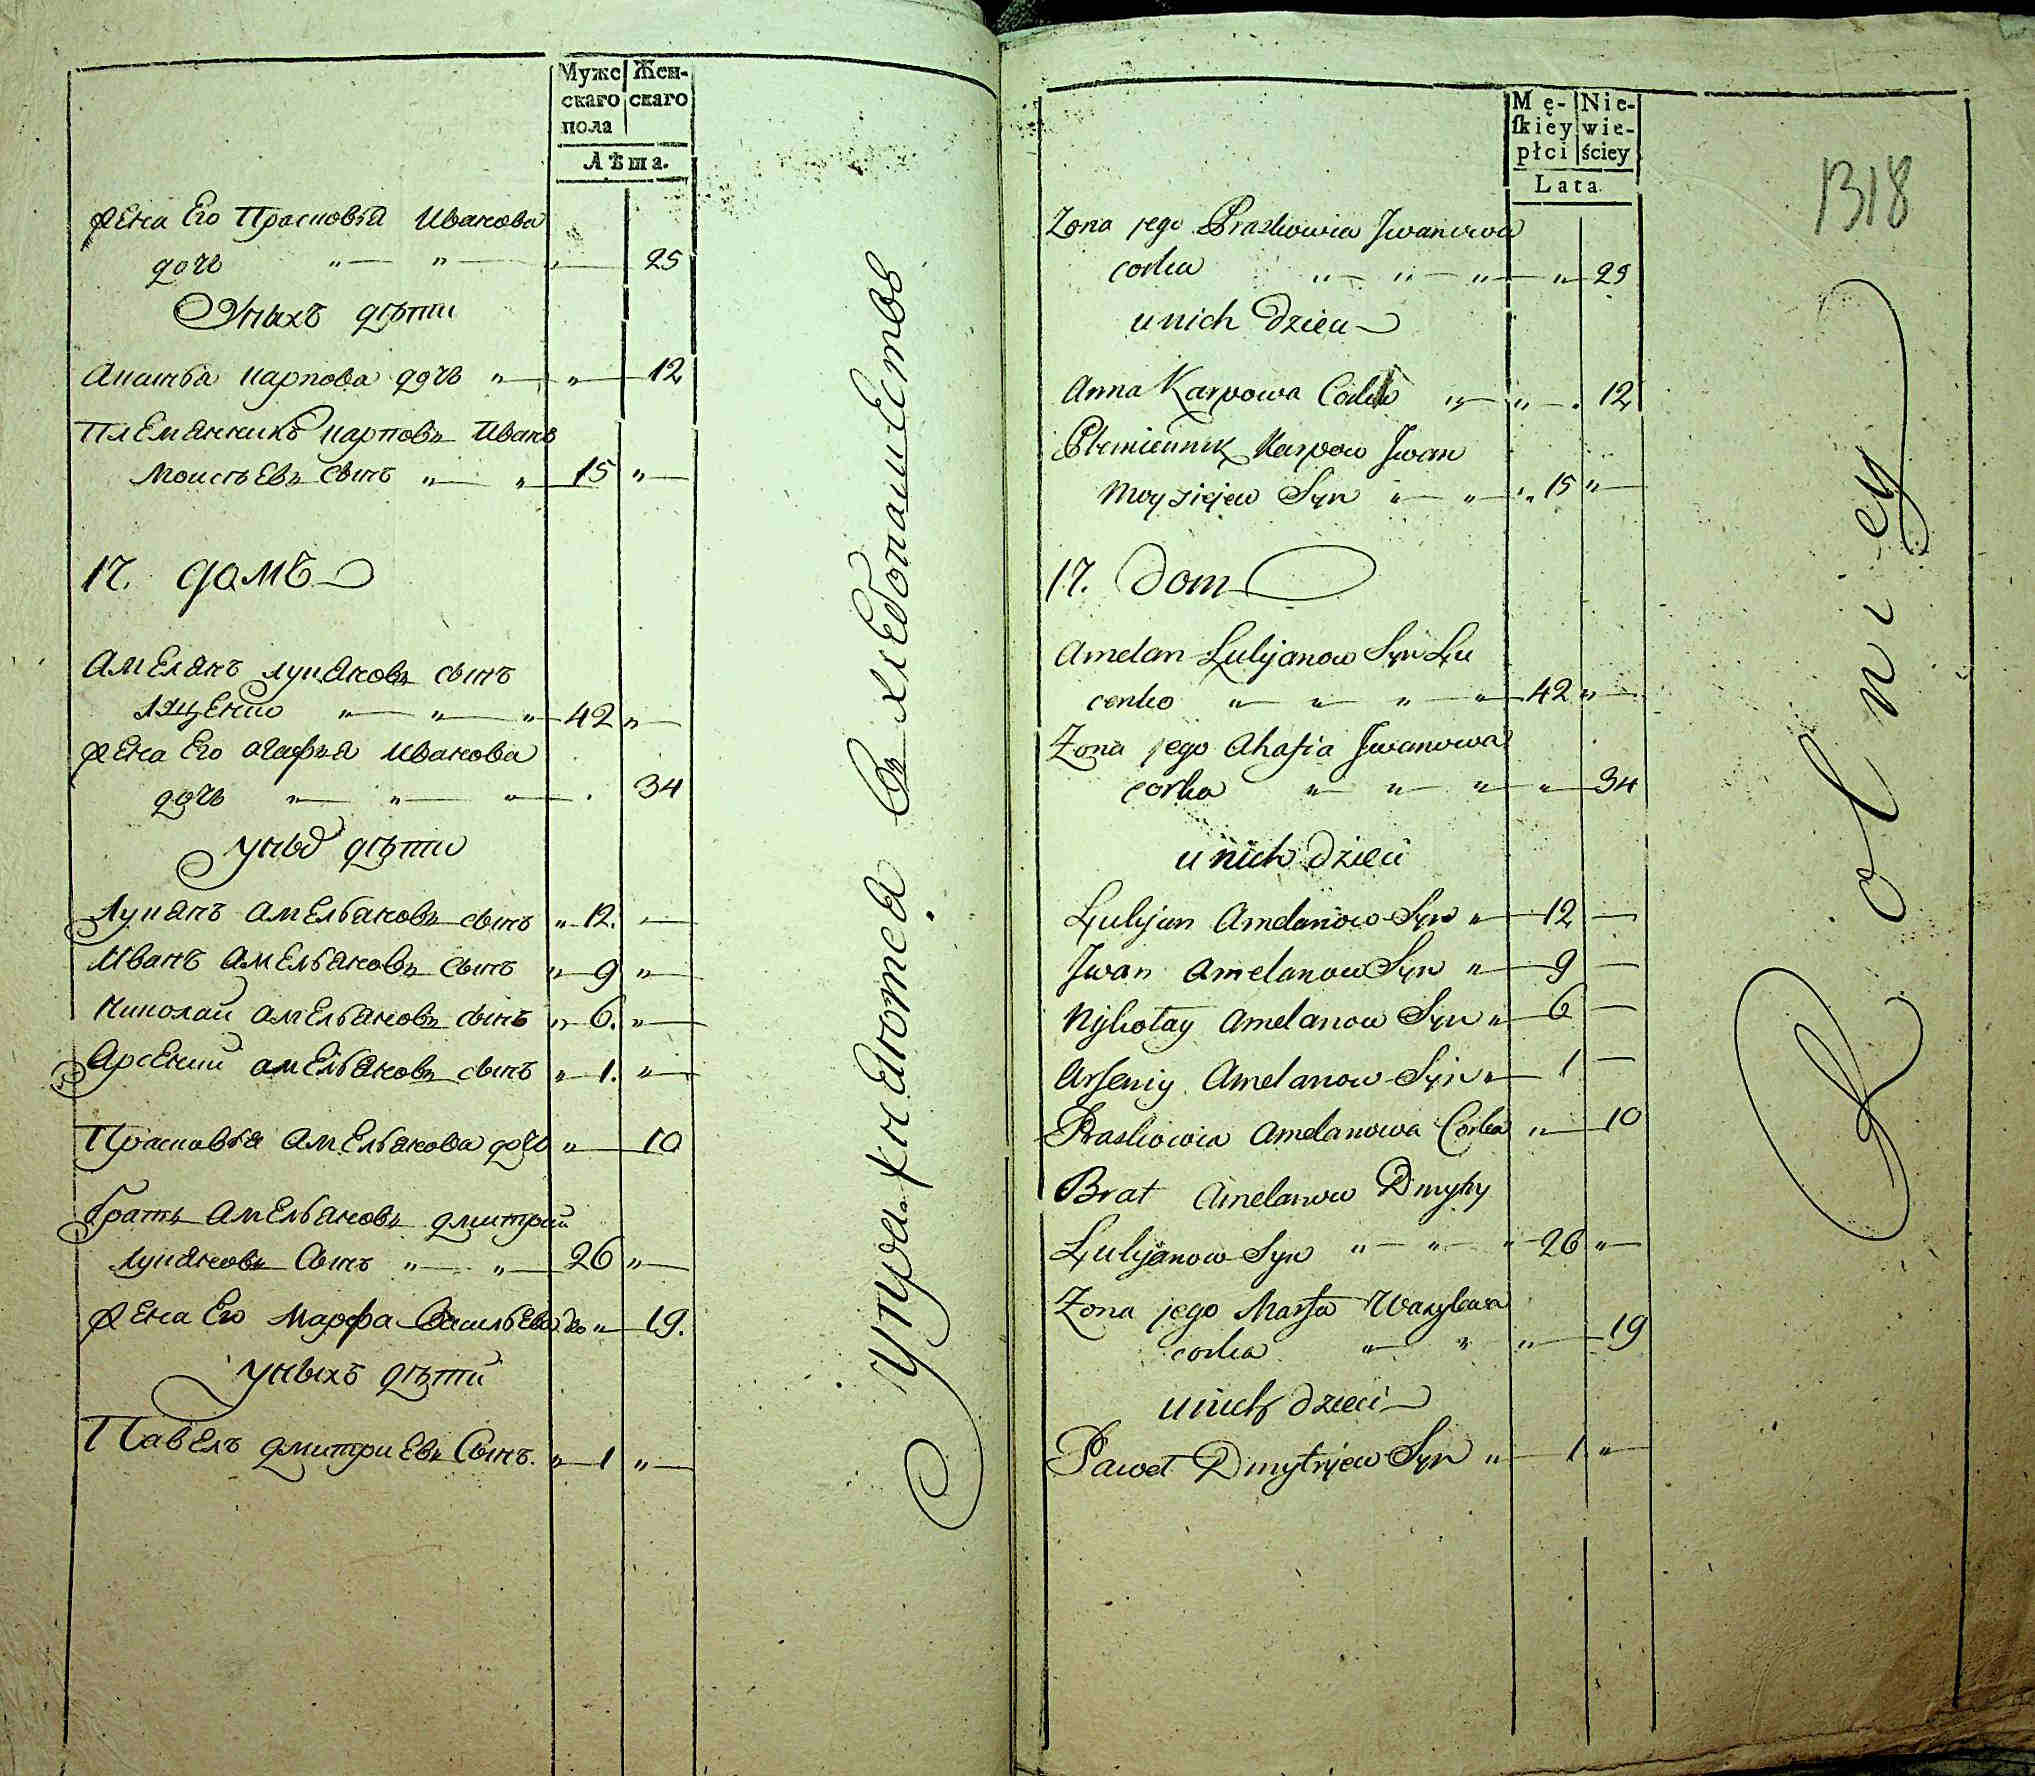 Муже
скаго
пола
Жен-
скаго
Лѣта.
Жена Его Прасковья Иванова
дочь " " " 25
У ныхъ дѣти
карпова дочь " " 12
Племянникъ карповъ Иванъ
Моисѣевъ сынъ " " 15 "
17. домъ
Амелянъ лукяновъ сынъ
ляценко " " " 42 "
Жена Его агафья Иванова
дочь " " " 34
у ных дѣти
Лукянъ амельяновъ сынъ " 12. "
Иванъ амельяновъ сынъ " 9 "
Николай амельяновъ сынъ " 6. "
Арсений амельяновъ сынъ " 1. "
Прасковья амельянова дочь " 10
братъ амельяновъ дмитрий
лукяновъ сынъ " " 26 "
Жена Его марфа Васильева до " 19.
у ныхъ дѣти
Павелъ дмитриевъ сынъ. " 1 "
въ хлебопашестве
Mę-
ſkiey
płci
Nie-
wie-
ściey
Lata
1318
Zona jego Praskowia Jwanowa
corka " " " " 25
u nich dzieci
Anna Karpowa Corka " " 12
Plemiennik Karpow Jwan
Moysiejew Syn " " " 15 "
17. Dom
Amelan Lukjanow Syn La
cenko " " " " 42 "
Zona jego Ahafia Jwanowa
corka " " " " 34
u nich dzieci
Lukjan Amelanow Syn " 12
Jwan Amelanow Syn " 9
Nykołay Amelanow Syn " 6
Arseniy Amelanow Syn " 1
Praskowia Amelanowa Corka " 10
Brat Amelanow Dmytry
Lukjanow Syn " " " 26 "
Zona jego Marfa Wasylewa
corka " " " 19
u nich dzieci
Paweł Dmytryjew Syn " 1 "
Rolniey